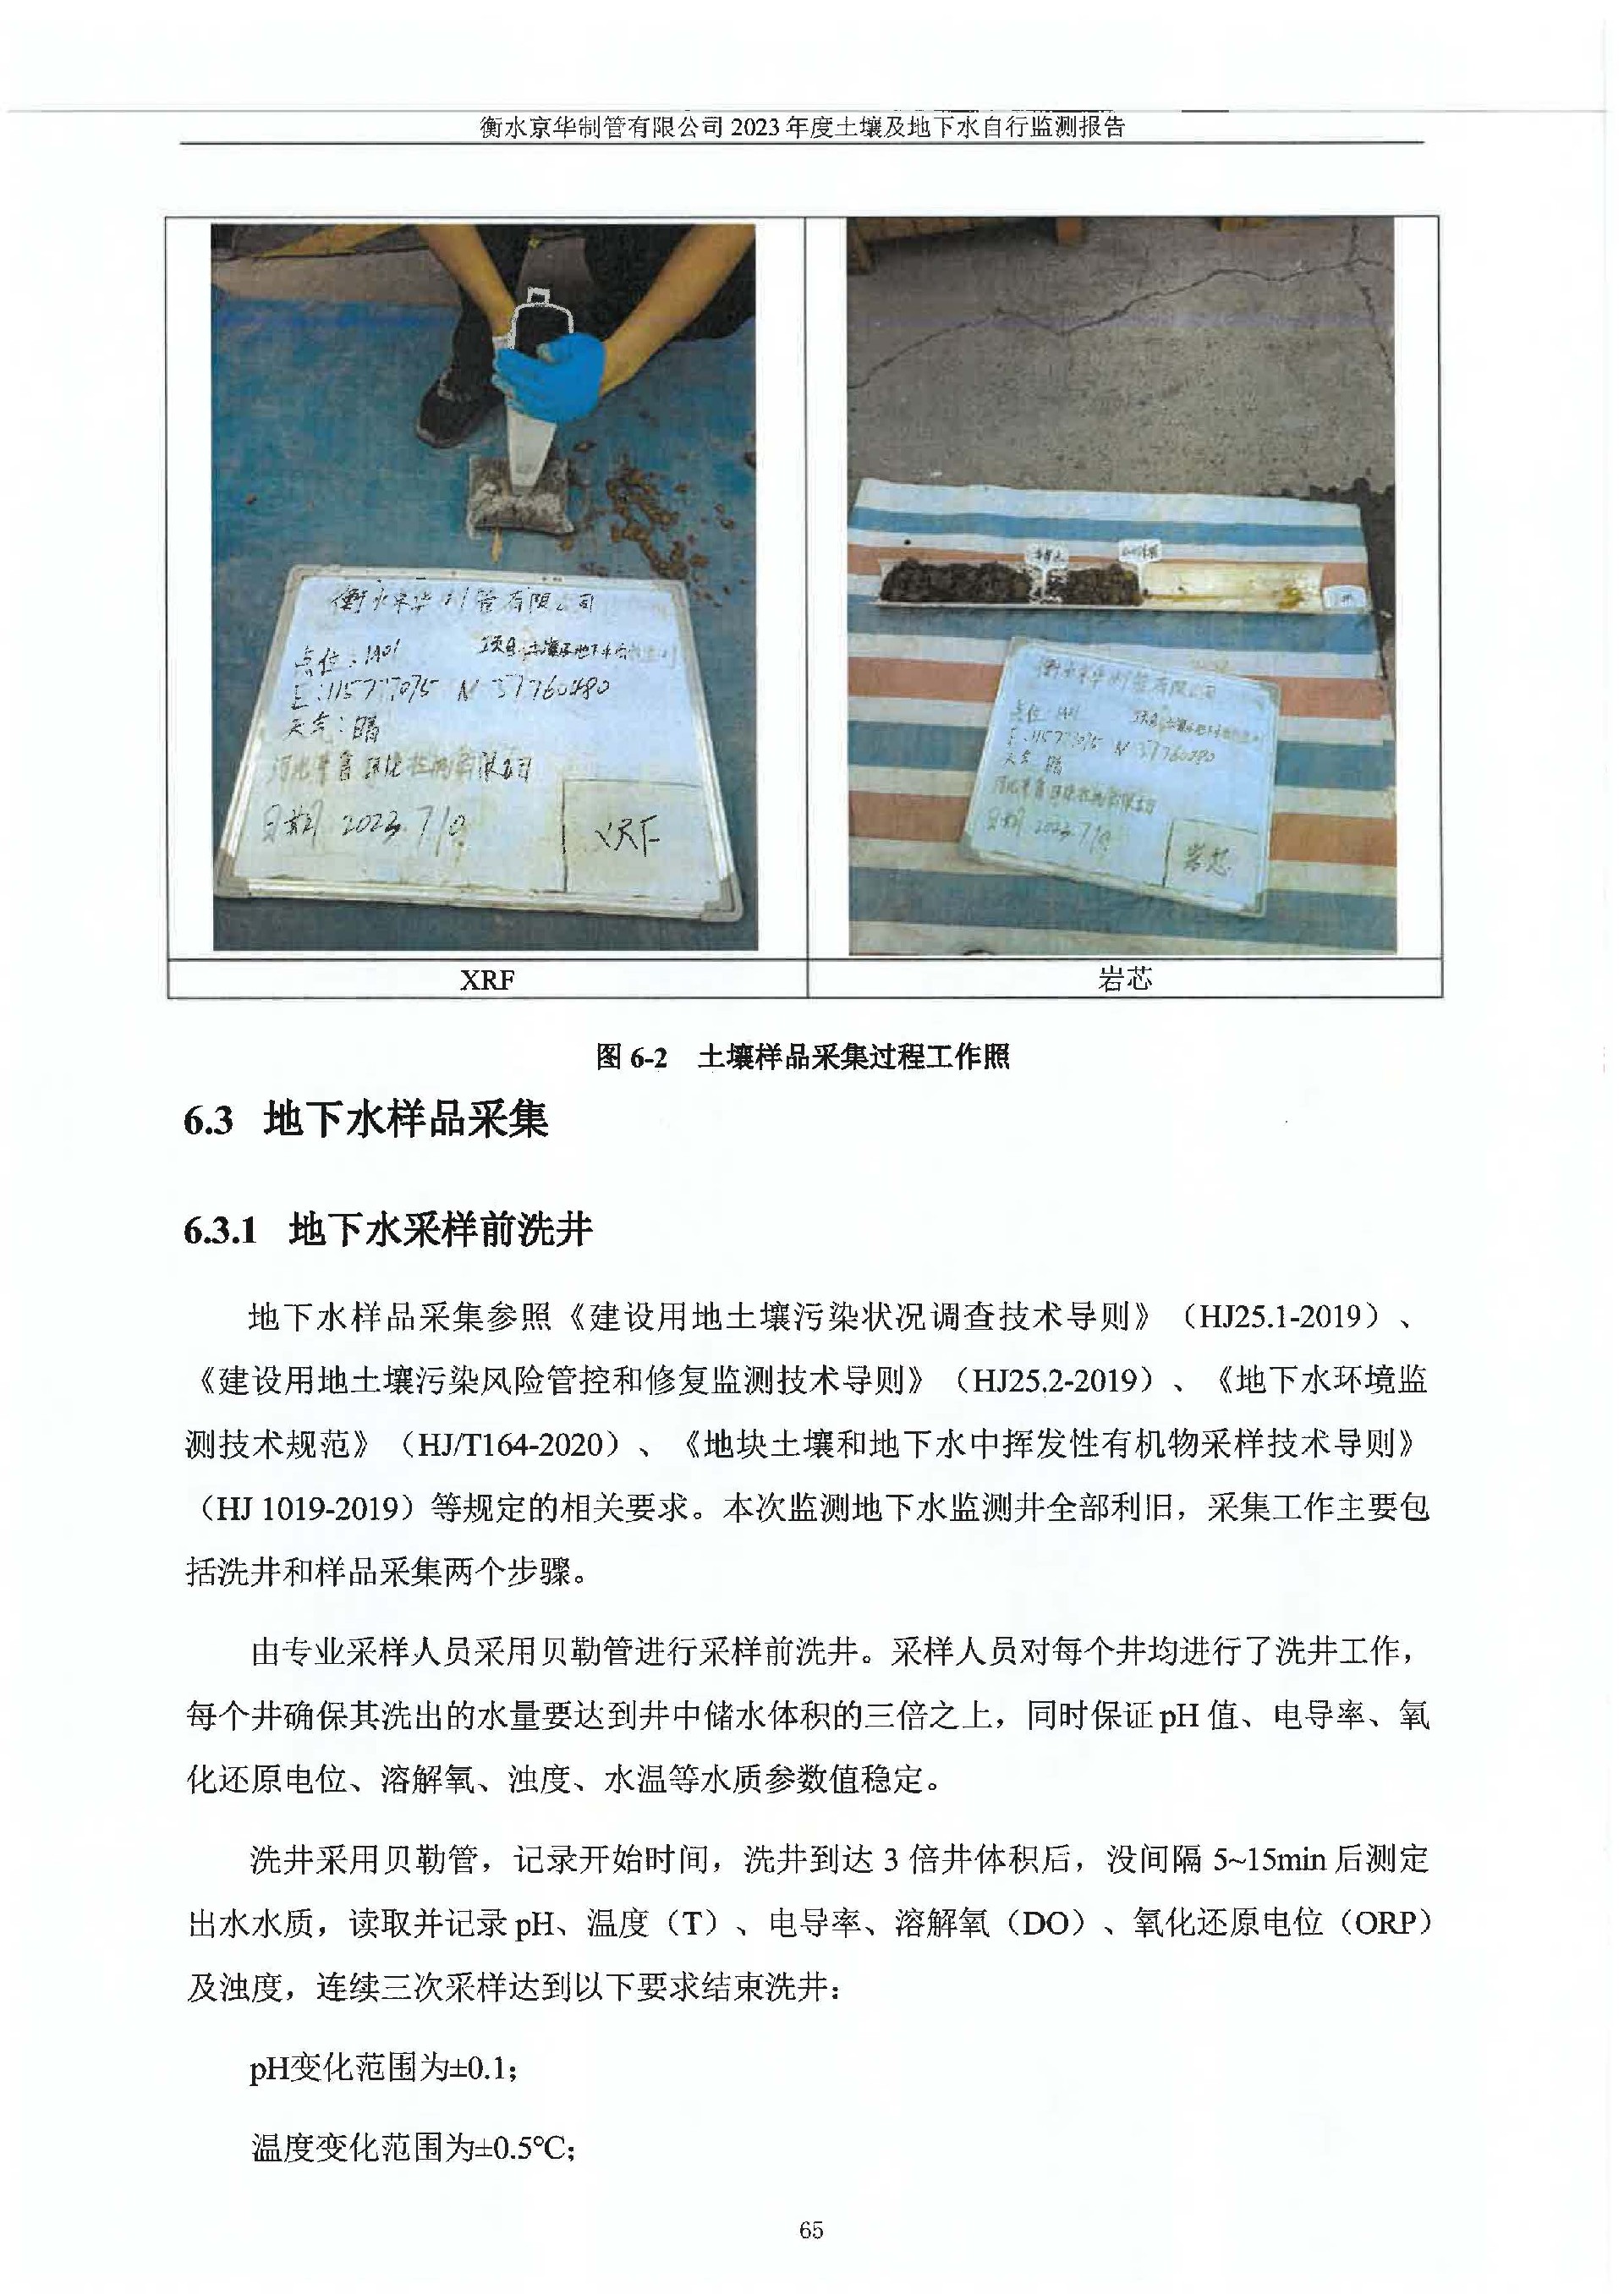 衡水京华制管有限公司 2023 年度土壤及地下水自行监测报告
衡水京华制管有限公司
点位：1A01
项目：土壤及地下水自行监测
E：115.777075 N 37.760480
天气：晴
日期 2023.7.10
XRF
衡水京华制管有限公司
点位 1A01
E：115.777075 N 37.760480
天气 晴
日期 2023.7.10
岩芯
XRF
岩芯
图 6-2 土壤样品采集过程工作照
6.3 地下水样品采集
6.3.1 地下水采样前洗井
地下水样品采集参照《建设用地土壤污染状况调查技术导则》（HJ25.1-2019）、
《建设用地土壤污染风险管控和修复监测技术导则》（HJ25.2-2019）、《地下水环境监
测技术规范》（HJ/T164-2020）、《地块土壤和地下水中挥发性有机物采样技术导则》
（HJ 1019-2019）等规定的相关要求。本次监测地下水监测井全部利旧，采集工作主要包
括洗井和样品采集两个步骤。
由专业采样人员采用贝勒管进行采样前洗井。采样人员对每个井均进行了洗井工作，
每个井确保其洗出的水量要达到井中储水体积的三倍之上，同时保证 pH 值、电导率、氧
化还原电位、溶解氧、浊度、水温等水质参数值稳定。
洗井采用贝勒管，记录开始时间，洗井到达 3 倍井体积后，没间隔 5~15min 后测定
出水水质，读取并记录 pH、温度（T）、电导率、溶解氧（DO）、氧化还原电位（ORP）
及浊度，连续三次采样达到以下要求结束洗井：
pH变化范围为±0.1；
温度变化范围为±0.5℃；
65